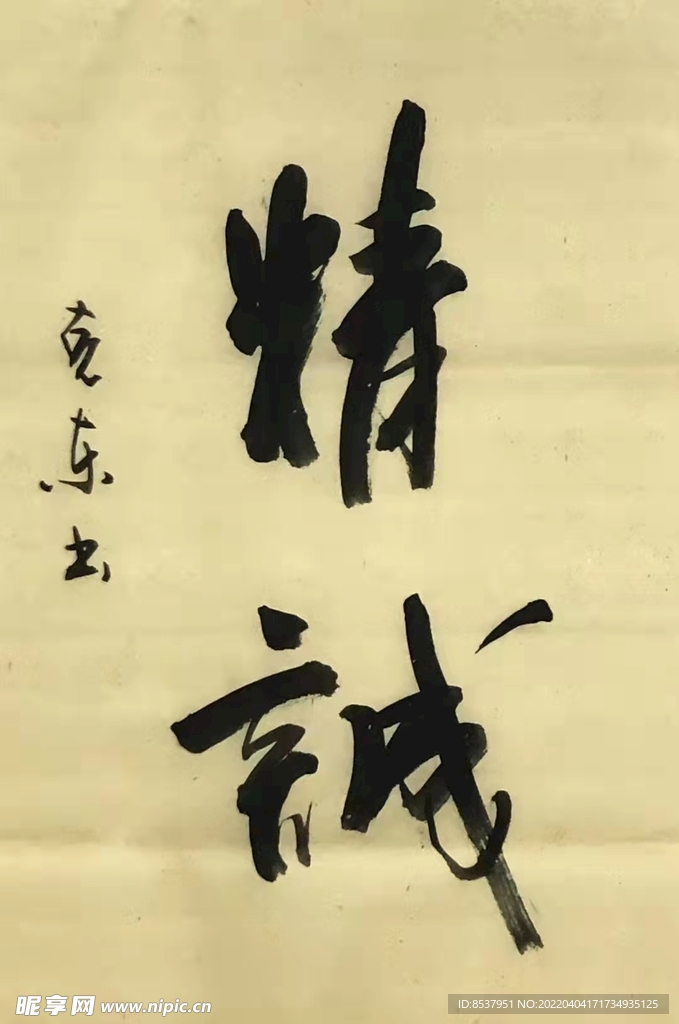 精誠
克东书
昵享网 www.nipic.cn
ID:8537951 NO:20220404171734935125